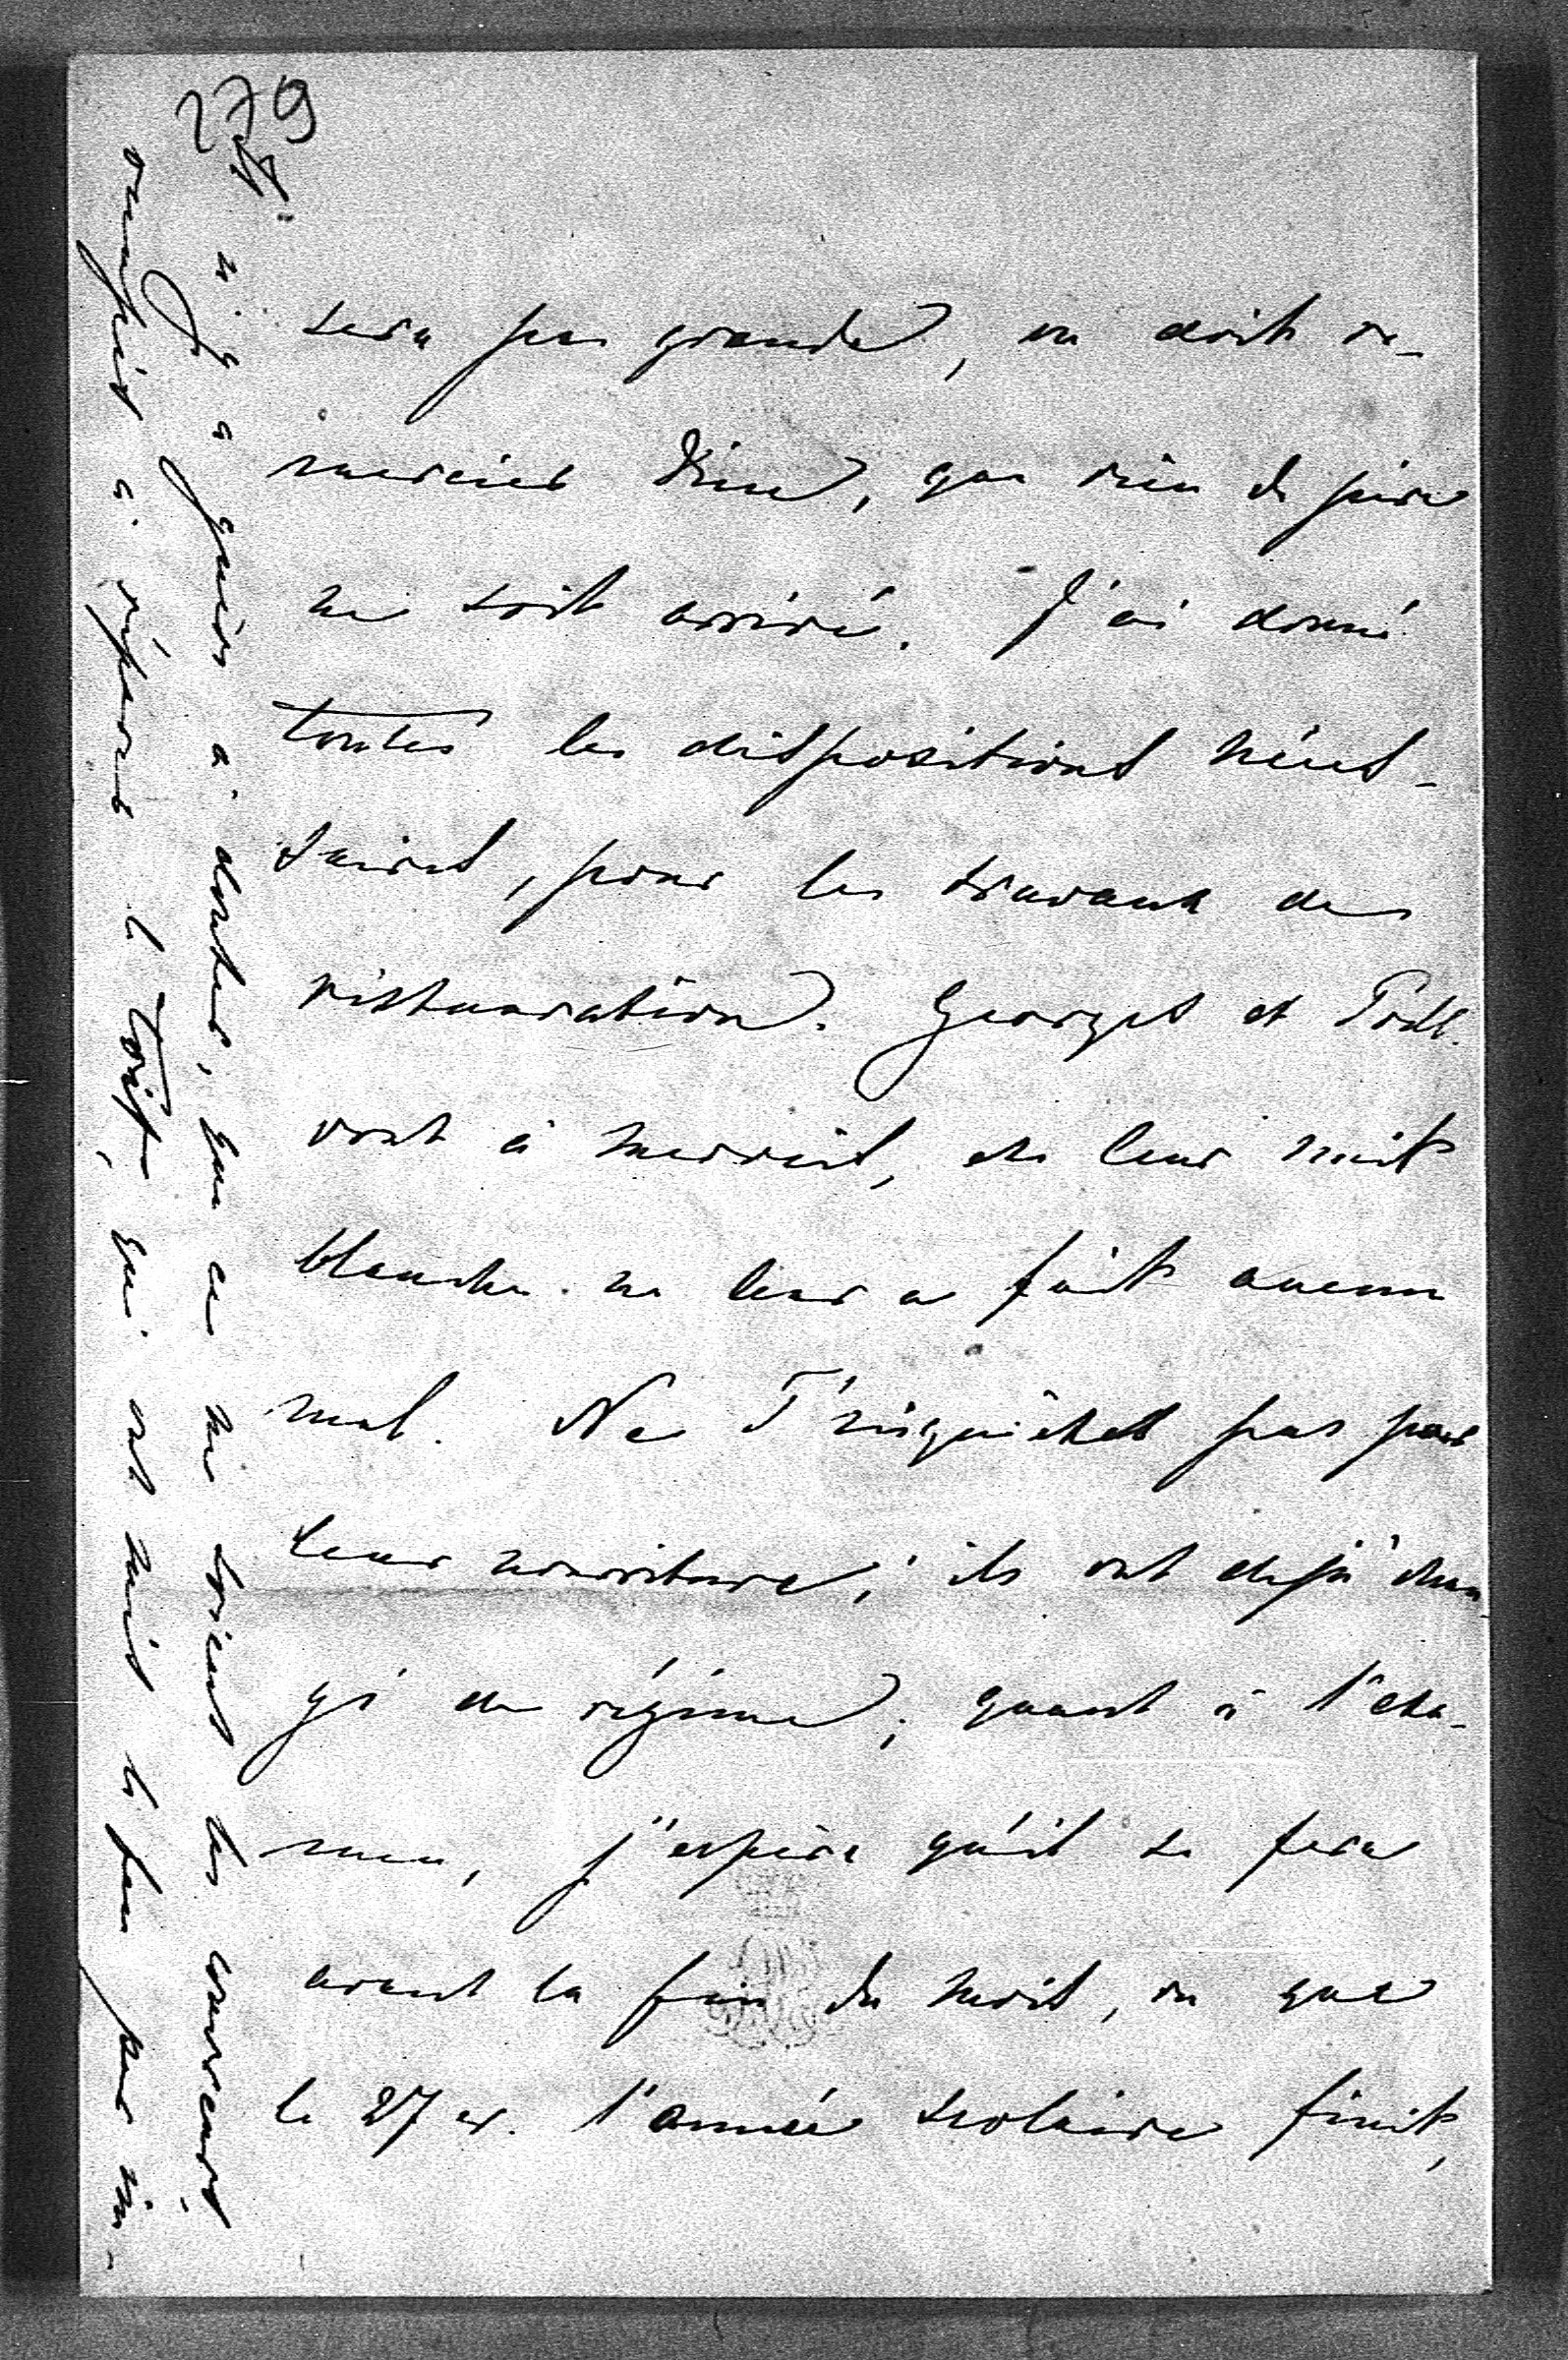 279
sera pas grande, on doit re-
mercier Dieu, que rien de pire
ne soit arrivé. J'ai donné
toutes les dispositions néces-
saires, pour les travaux de
restauration. Georges et Podl.
vont à merveil, et leur nuit
blanche ne leur a fait aucun
mal. Ne T'inquiètes pas pour
leur nourriture; ils ont dejà chan-
gé de régime; quant à l'exa-
men, j'espère qu'il se fera
avant la fin du mois, vu que
le 27 cr. l'année scolaire finit,
Il n'y a guère à douter, que ce ne soient les couvreurs,
occupés à réparer le toit, qui ont mis le feu par im-